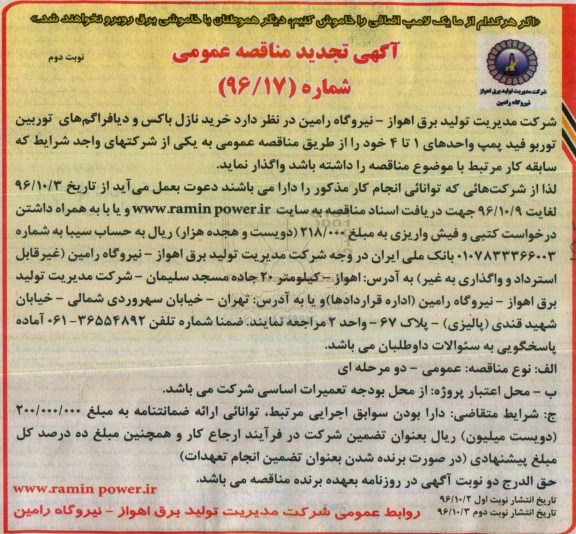 «اگر هرکدام از ما یک لامپ اضافی را خاموش کنیم، دیگر هموطنان با خاموشی برق روبرو نخواهند شد.»
آگهی تجدید مناقصه عمومی
نوبت دوم
شماره (۹۶/۱۷)
شرکت مدیریت تولید برق اهواز
نیروگاه رامین
شرکت مدیریت تولید برق اهواز - نیروگاه رامین در نظر دارد خرید نازل باکس و دیافراگم‌های توربین
توربو فید پمپ واحدهای ۱ تا ۴ خود را از طریق مناقصه عمومی به یکی از شرکتهای واجد شرایط که
سابقه کار مرتبط با موضوع مناقصه را داشته باشد واگذار نماید.
لذا از شرکت‌هائی که توانائی انجام کار مذکور را دارا می باشند دعوت بعمل می‌آید از تاریخ ۹۶/۱۰/۳
لغایت ۹۶/۱۰/۹ جهت دریافت اسناد مناقصه به سایت www.ramin power.ir و یا با به همراه داشتن
درخواست کتبی و فیش واریزی به مبلغ ۲۱۸/۰۰۰ (دویست و هجده هزار) ریال به حساب سیبا به شماره
۰۱۰۷۸۳۳۳۶۶۰۰۳ بانک ملی ایران در وجه شرکت مدیریت تولید برق اهواز - نیروگاه رامین (غیرقابل
استرداد و واگذاری به غیر) به آدرس: اهواز - کیلومتر ۲۰ جاده مسجد سلیمان - شرکت مدیریت تولید
برق اهواز - نیروگاه رامین (اداره قراردادها) و یا به آدرس: تهران - خیابان سهروردی شمالی - خیابان
شهید قندی (پالیزی) - پلاک ۶۷ - واحد ۲ مراجعه نمایند. ضمنا شماره تلفن ۳۶۵۵۴۸۹۲-۰۶۱ آماده
پاسخگویی به سئوالات داوطلبان می باشد.
الف: نوع مناقصه: عمومی - دو مرحله ای
ب - محل اعتبار پروژه: از محل بودجه تعمیرات اساسی شرکت می باشد.
ج: شرایط متقاضی: دارا بودن سوابق اجرایی مرتبط، توانائی ارائه ضمانتنامه به مبلغ ۲۰۰/۰۰۰/۰۰۰
(دویست میلیون) ریال بعنوان تضمین شرکت در فرآیند ارجاع کار و همچنین مبلغ ده درصد کل
مبلغ پیشنهادی (در صورت برنده شدن بعنوان تضمین انجام تعهدات)
حق الدرج دو نوبت آگهی در روزنامه بعهده برنده مناقصه می باشد.
www.ramin power.ir
تاریخ انتشار نوبت اول ۹۶/۱۰/۲
تاریخ انتشار نوبت دوم ۹۶/۱۰/۳
روابط عمومی شرکت مدیریت تولید برق اهواز - نیروگاه رامین